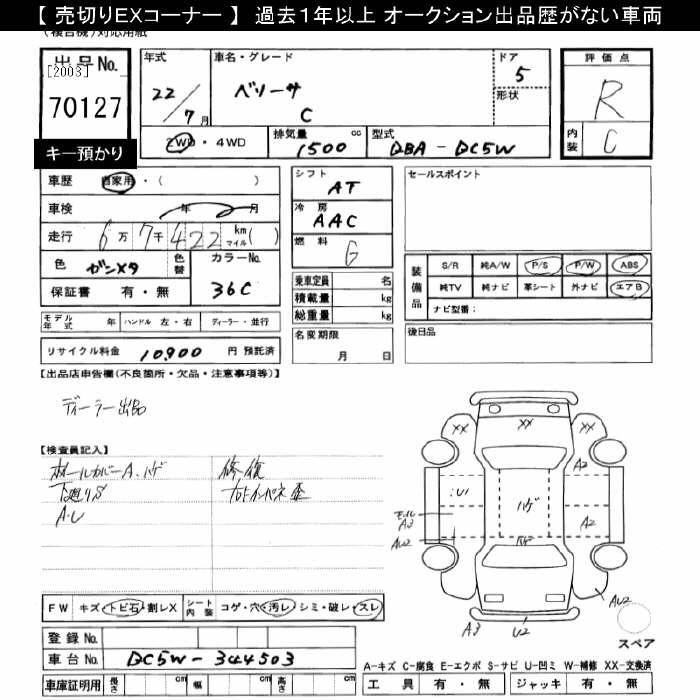 【 売切りEXコーナー 】 過去1年以上 オークション出品歴がない車両
出品No.
[2003]
70127
キー預かり
年式
22/7月
車名・グレード
ベリーサ
C
ドア
5
形状
評価点
R
内装
C
2WD・4WD
排気量
1500 cc
型式
DBA-DC5W
車歴 自家用・( )
車検 年 月
走行 6万7千422 km マイル( )
色 ガンメタ 色替
カラーNo.
36C
保証書 有・無
モデル年式 年 ハンドル 左・右 ディーラー・並行
リサイクル料金 10,900 円 預託済
シフト
AT
冷房
AAC
燃料
G
乗車定員 名
積載量 kg
総重量 kg
名変期限
月 日
セールスポイント
装備品
S/R 純A/W P/S P/W ABS
純TV 純ナビ 革シート 外ナビ エアB
ナビ型番:
後日品
【出品店申告欄(不良箇所・欠品・注意事項等)】
ディーラー出品
【検査員記入】
ホールカバーA.ハゲ
下廻りS
A.U
修復
XX
XX
XX
A2
U1
ハゲ
モール
A3
A2
AU2
ハゲ
AU2
A3
U2
スペア
FW キズ・トビ石・割レX シート内装 コゲ・穴・汚レ・シミ・破レ・スレ
登録No.
車台No. DC5W-344503
車庫証明用 長さ cm 幅 cm 高さ cm
A-キズ C-腐食 E-エクボ S-サビ U-凹ミ W-補修 XX-交換済
工具 有・無 ジャッキ 有・無